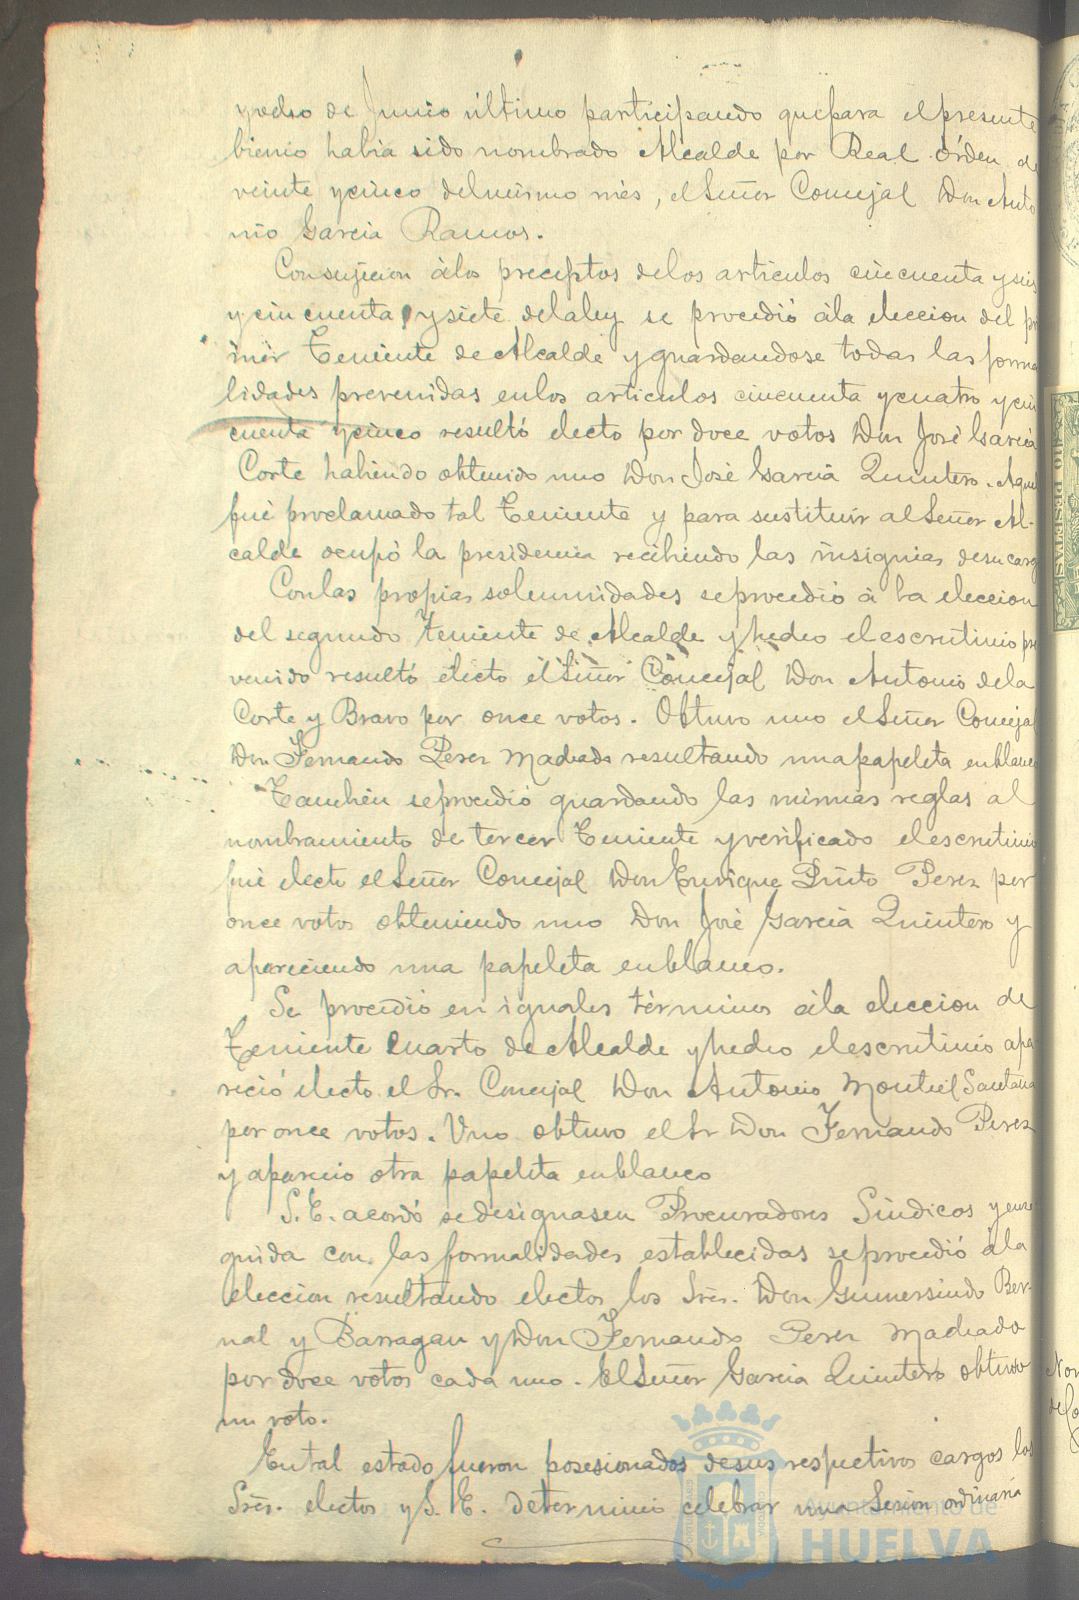 y ocho de Junio último participando que para el presente
bienio habia sido nombrado Alcalde por Real órden de
veinte y cinco del mismo més, el Señor Concejal Don Anto
nio Garcia Ramos.
Con sujecion á los preceptos de los articulos cincuenta y seis
y cincuenta y siete de la ley se procedió á la eleccion del pri
mér Teniente de Alcalde y guardandose todas las forma
lidades prevenidas en los articulos cincuenta y cuatro y cin
cuenta y cinco resultó electo por doce votos Don José Garcia
Corte habiendo obtenido uno Don José Garcia Quintero. Aquel
fué proclamado tal Teniente y para sustituir al Señor Al-
calde ocupó la presidencia recibiendo las insignias de su cargo
Con las propias solemnidades se procedió á la eleccion
del segundo Teniente de Alcalde y hecho el escrutinio pre
venido resultó electo el Señor Concejal Don Antonio de la
Corte y Bravo por once votos. Obtuvo uno el Señor Concejal
Don Fernando Perez Machado resultando una papeleta en blanco
Tambien se procedió guardando las mismas reglas al
nombramiento de tercer Teniente y verificado el escrutinio
fué electo el Señor Concejal Don Enrique Pinto Perez por
once votos obteniendo uno Don José Garcia Quintero y
apareciendo una papeleta en blanco.
Se procedió en iguales términos á la eleccion de
Teniente Cuarto de Alcalde y hecho el escrutinio apa
reció electo el Sr. Concejal Don Antonio Montiel Santana
por once votos. Uno obtuvo el Sr Don Fernando Perez
y aparecio otra papeleta en blanco
S. E. acordó se designasen Procuradores Síndicos y ense
guida con las formalidades establecidas se procedió á la
eleccion resultando electos los Sres. Don Gumersindo Ber-
nal y Barragan y Don Fernando Perez Machado
por doce votos cada uno. El Señor Garcia Quintero obtuvo
un voto.
En tal estado fueron posesionados de sus respectivos cargos los
Sres. electos y S. E. determinó celebrar una Sesion ordinaria
Ayuntamiento de
HUELVA